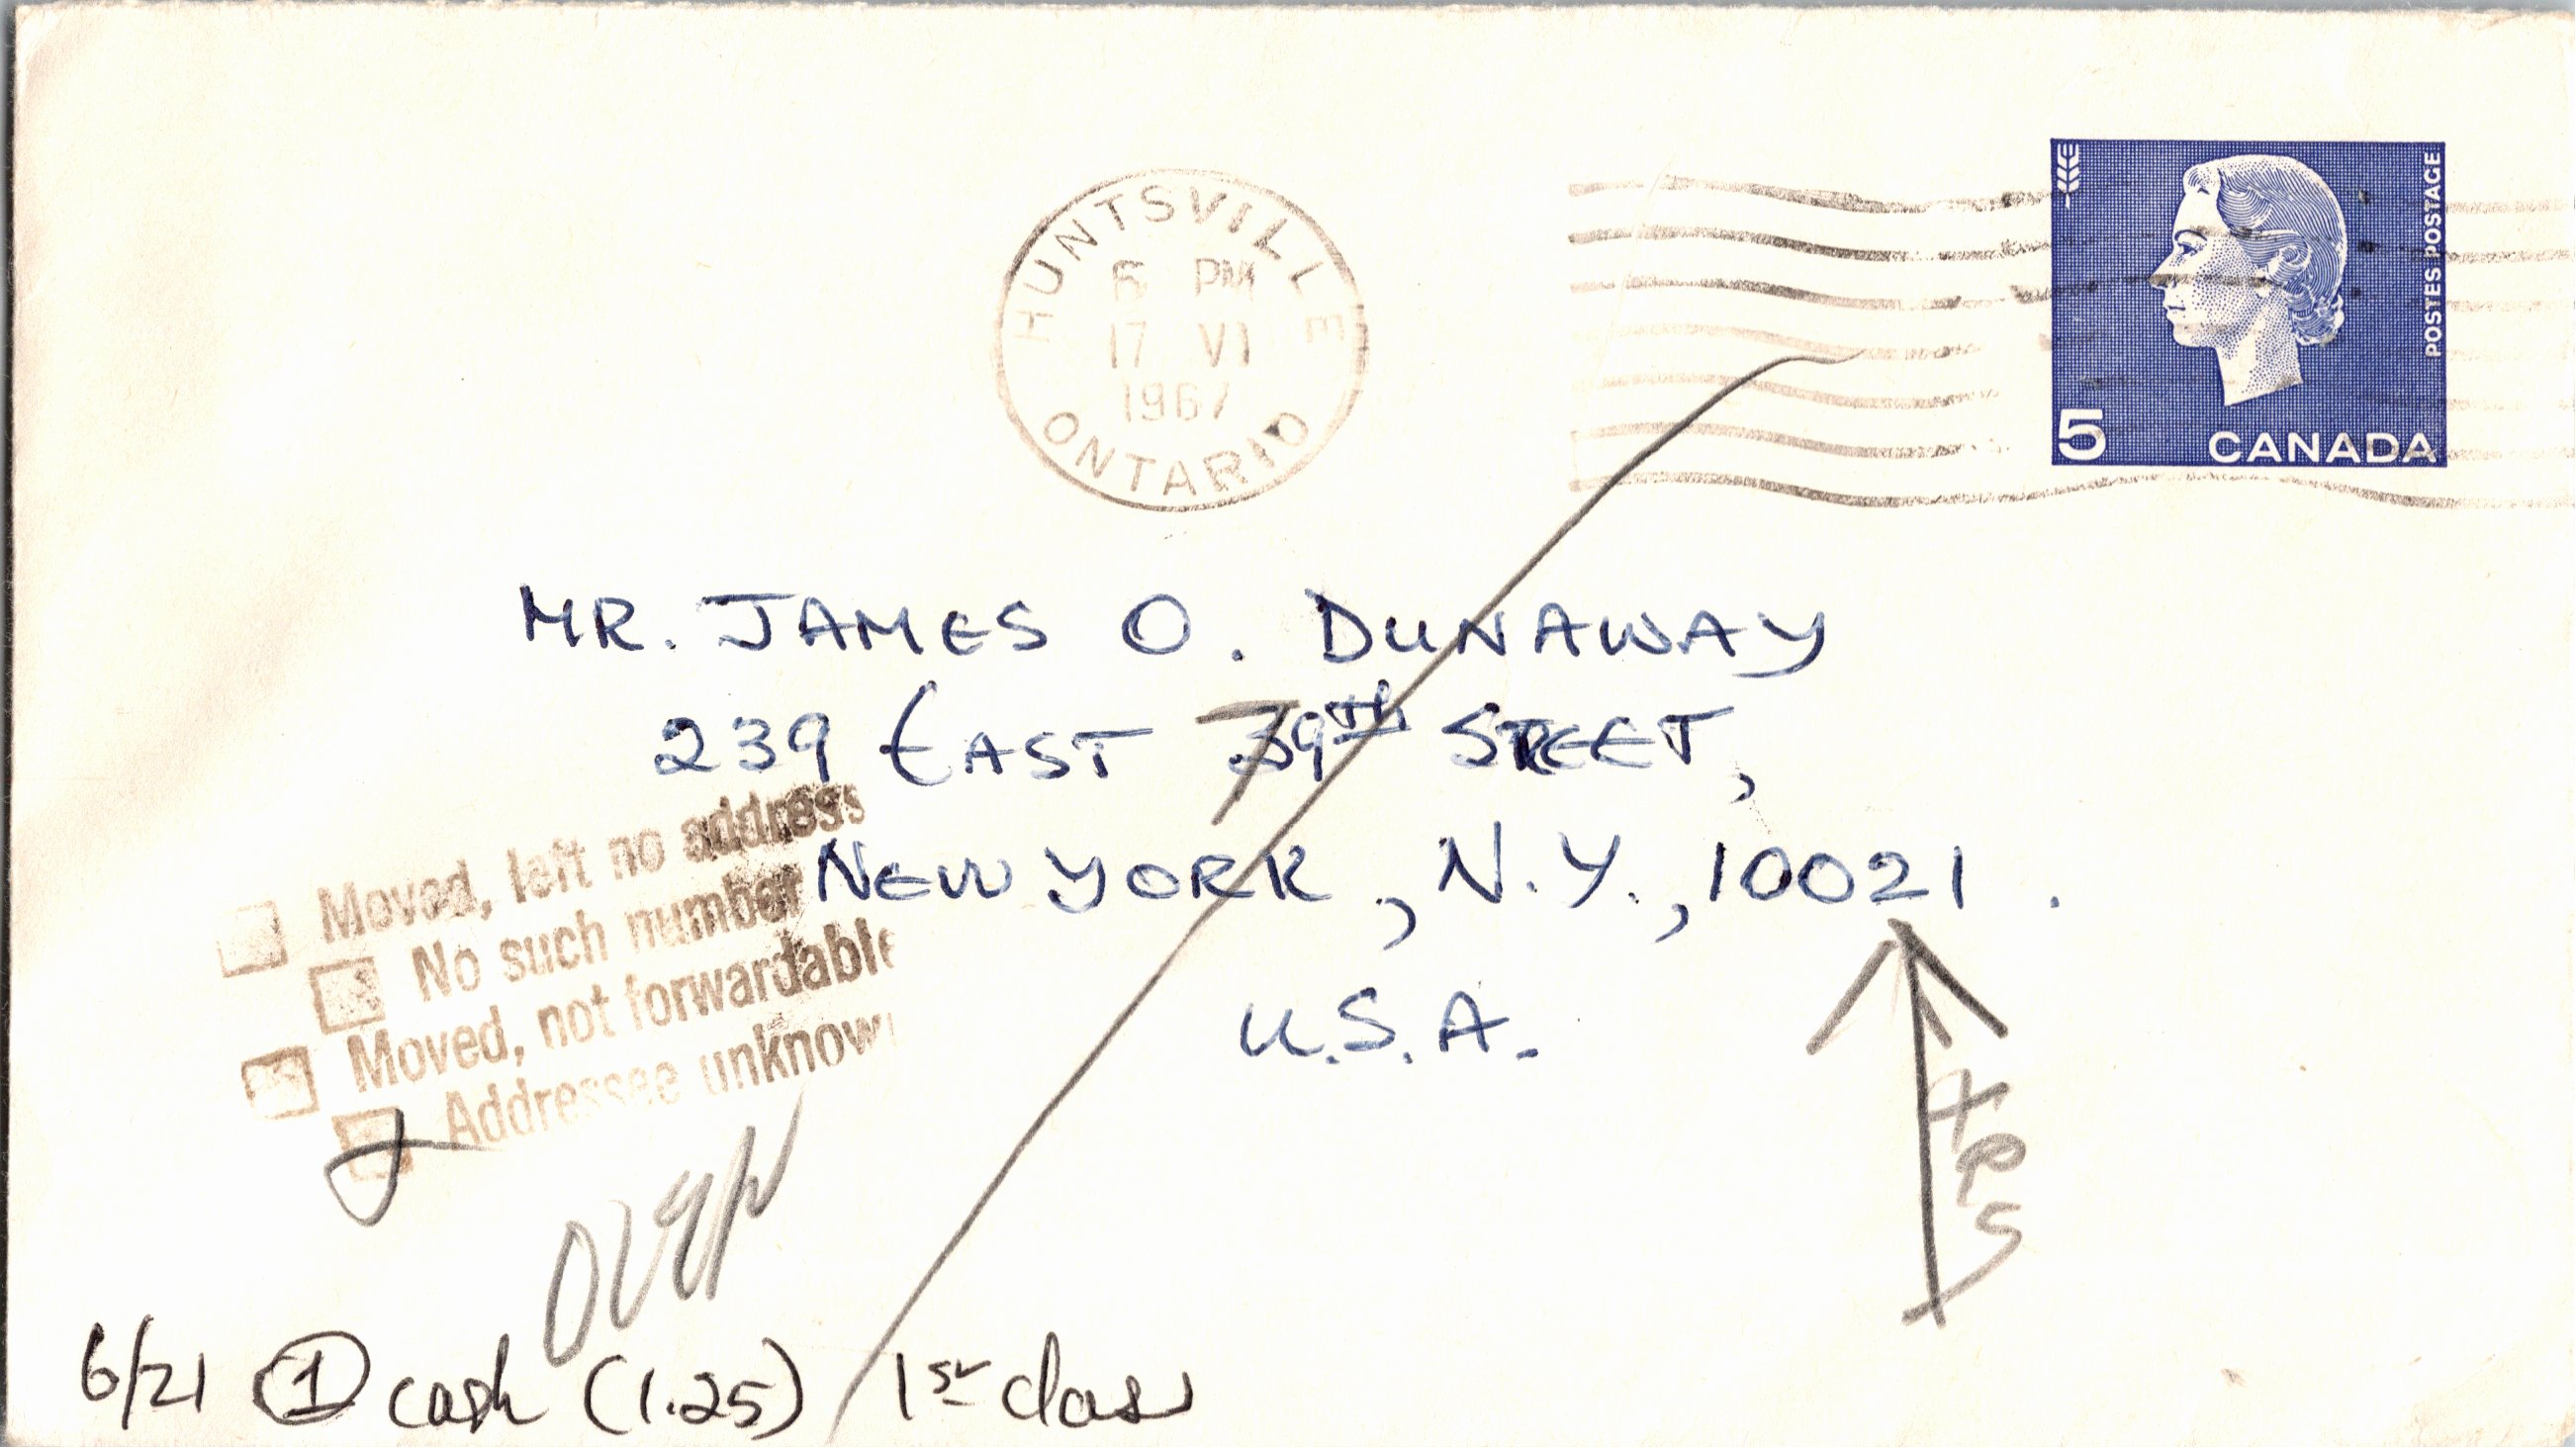 HUNTSVILLE
6 PM
17 VI
1967
ONTARIO
POSTES POSTAGE
5 CANADA
MR. JAMES O. DUNAWAY
239 EAST 79TH STREET,
NEW YORK, N.Y., 10021.
U.S.A.
Moved, left no address
No such number
Moved, not forwardable
Addressee unknown
over
6/21 1 cash (1.25) 1st class